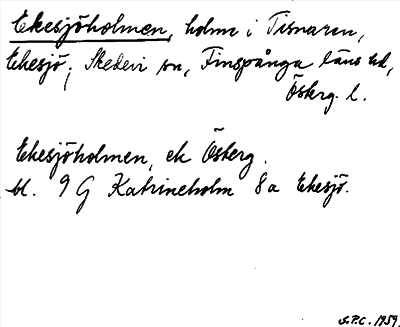 Ekesjöholmen, holme i Tisnaren,
Ekesjö, Skedevi sn, Finspånga läns hd,
Österg. l.
Ekesjöholmen, ek Österg.
bl. 9 G Katrineholm 8a Ekesjö.
S.P.C. 1959.